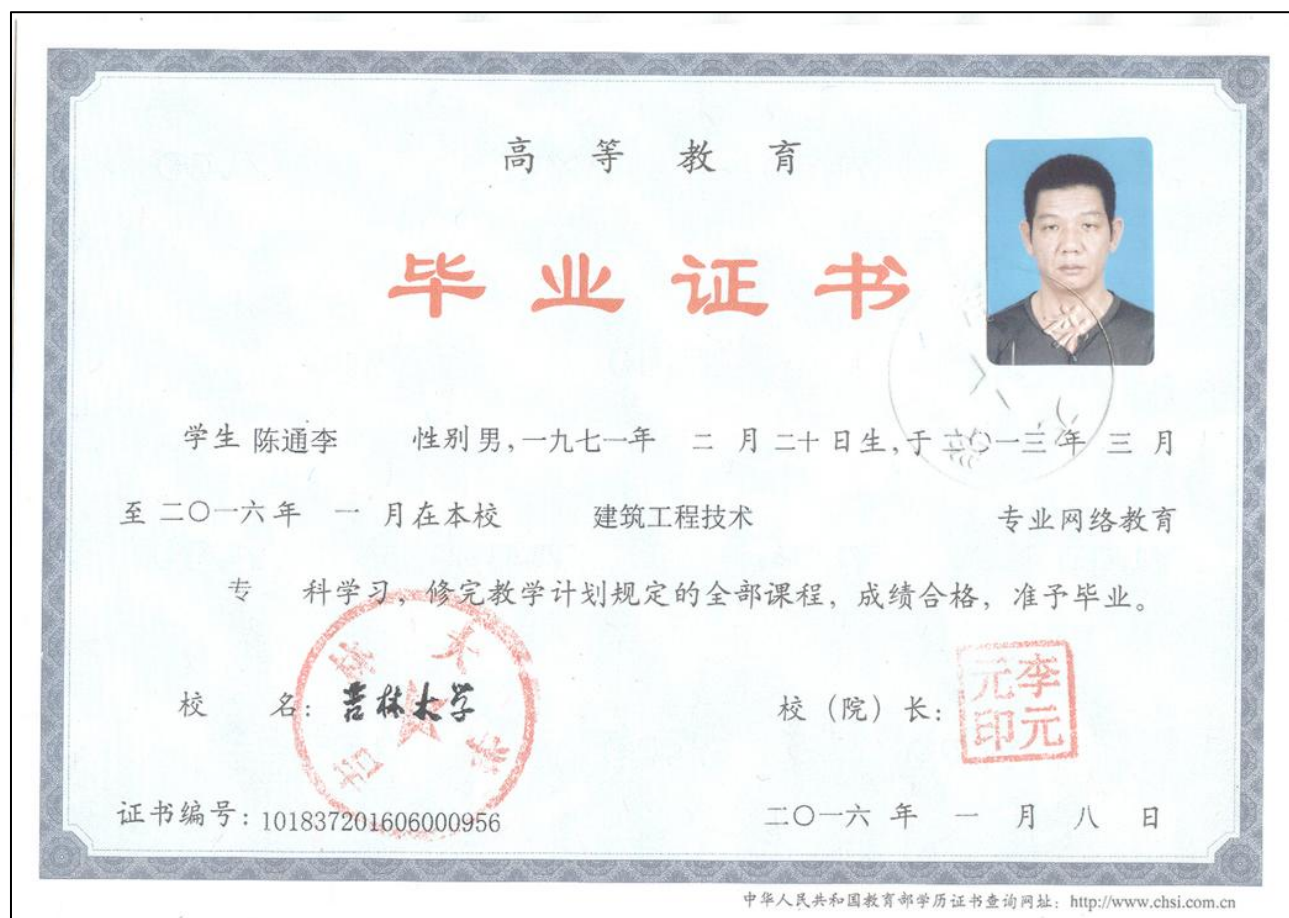 高等教育
毕业证书
学生 陈通李 性别 男, 一九七一年 二 月 二十 日生, 于 二〇一三年 三 月
至 二〇一六 年 一 月在本校 建筑工程技术 专业网络教育
专 科学习, 修完教学计划规定的全部课程, 成绩合格, 准予毕业。
吉林大学
校 名: 吉林大学
校（院）长:
李元元印
证书编号: 101837201606000956
二〇一六 年 一 月 八 日
中华人民共和国教育部学历证书查询网址: http://www.chsi.com.cn